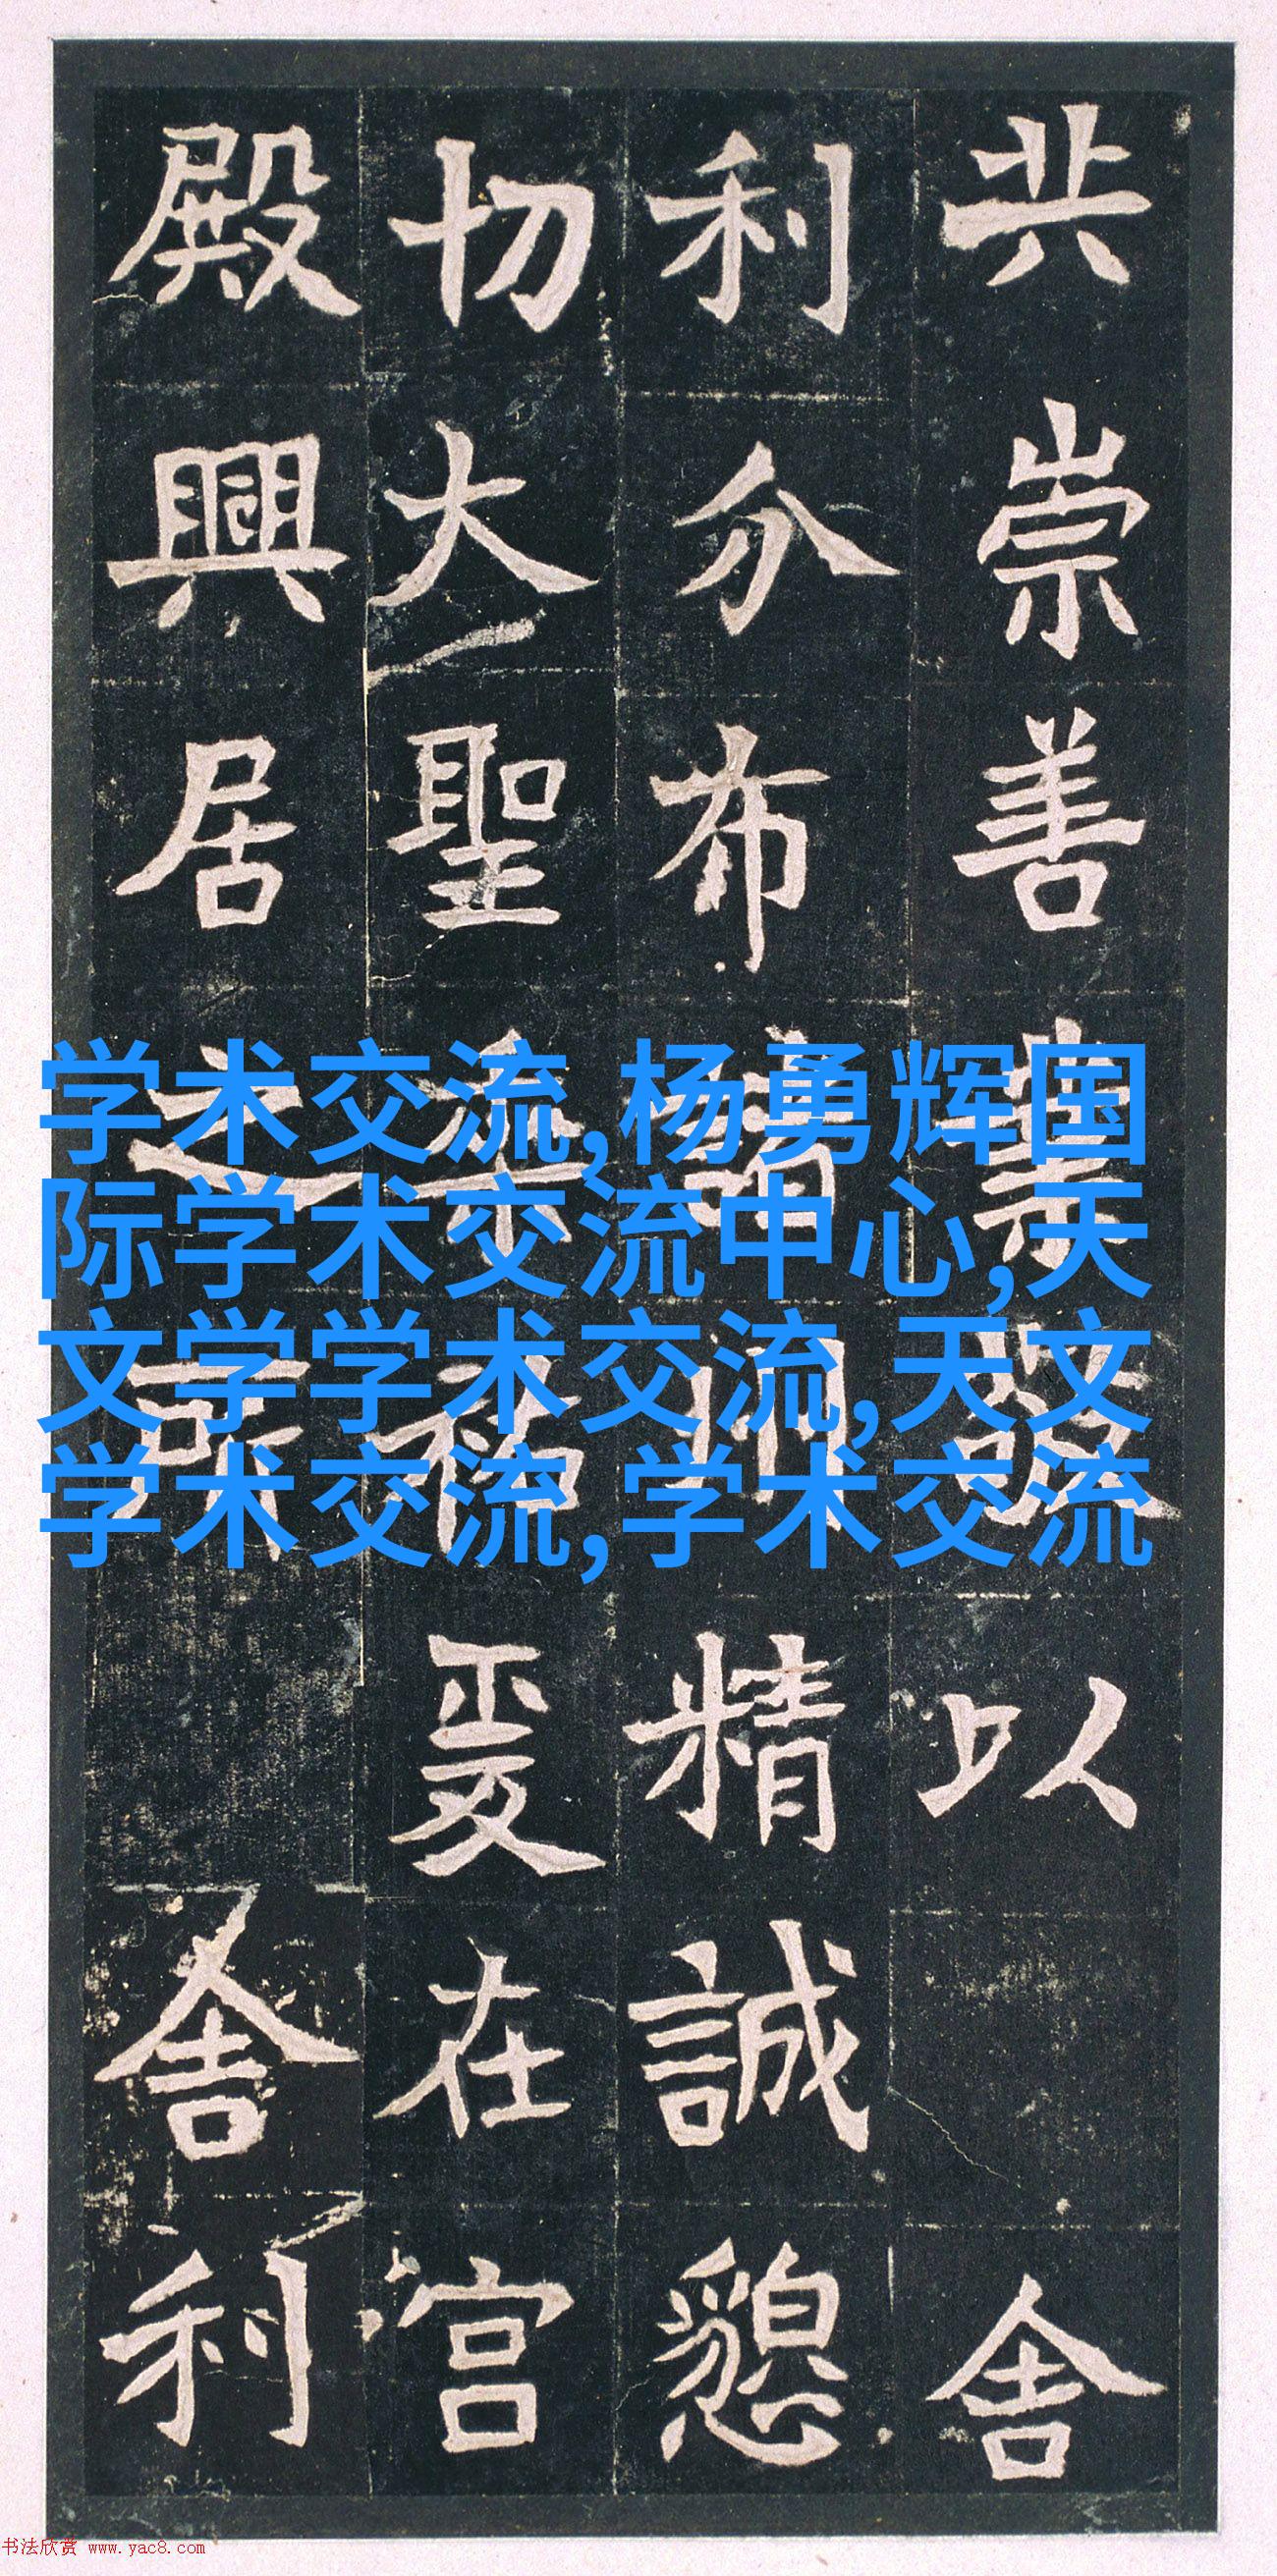 学术交流,杨勇辉国
际学术交流中心,天
文学学术交流,天文
学术交流,学术交流
共崇善業以舍
利分布諸州精誠懇
切大聖垂祐爰在宫
殿興居之所舍利
书法欣赏 www.yac8.com